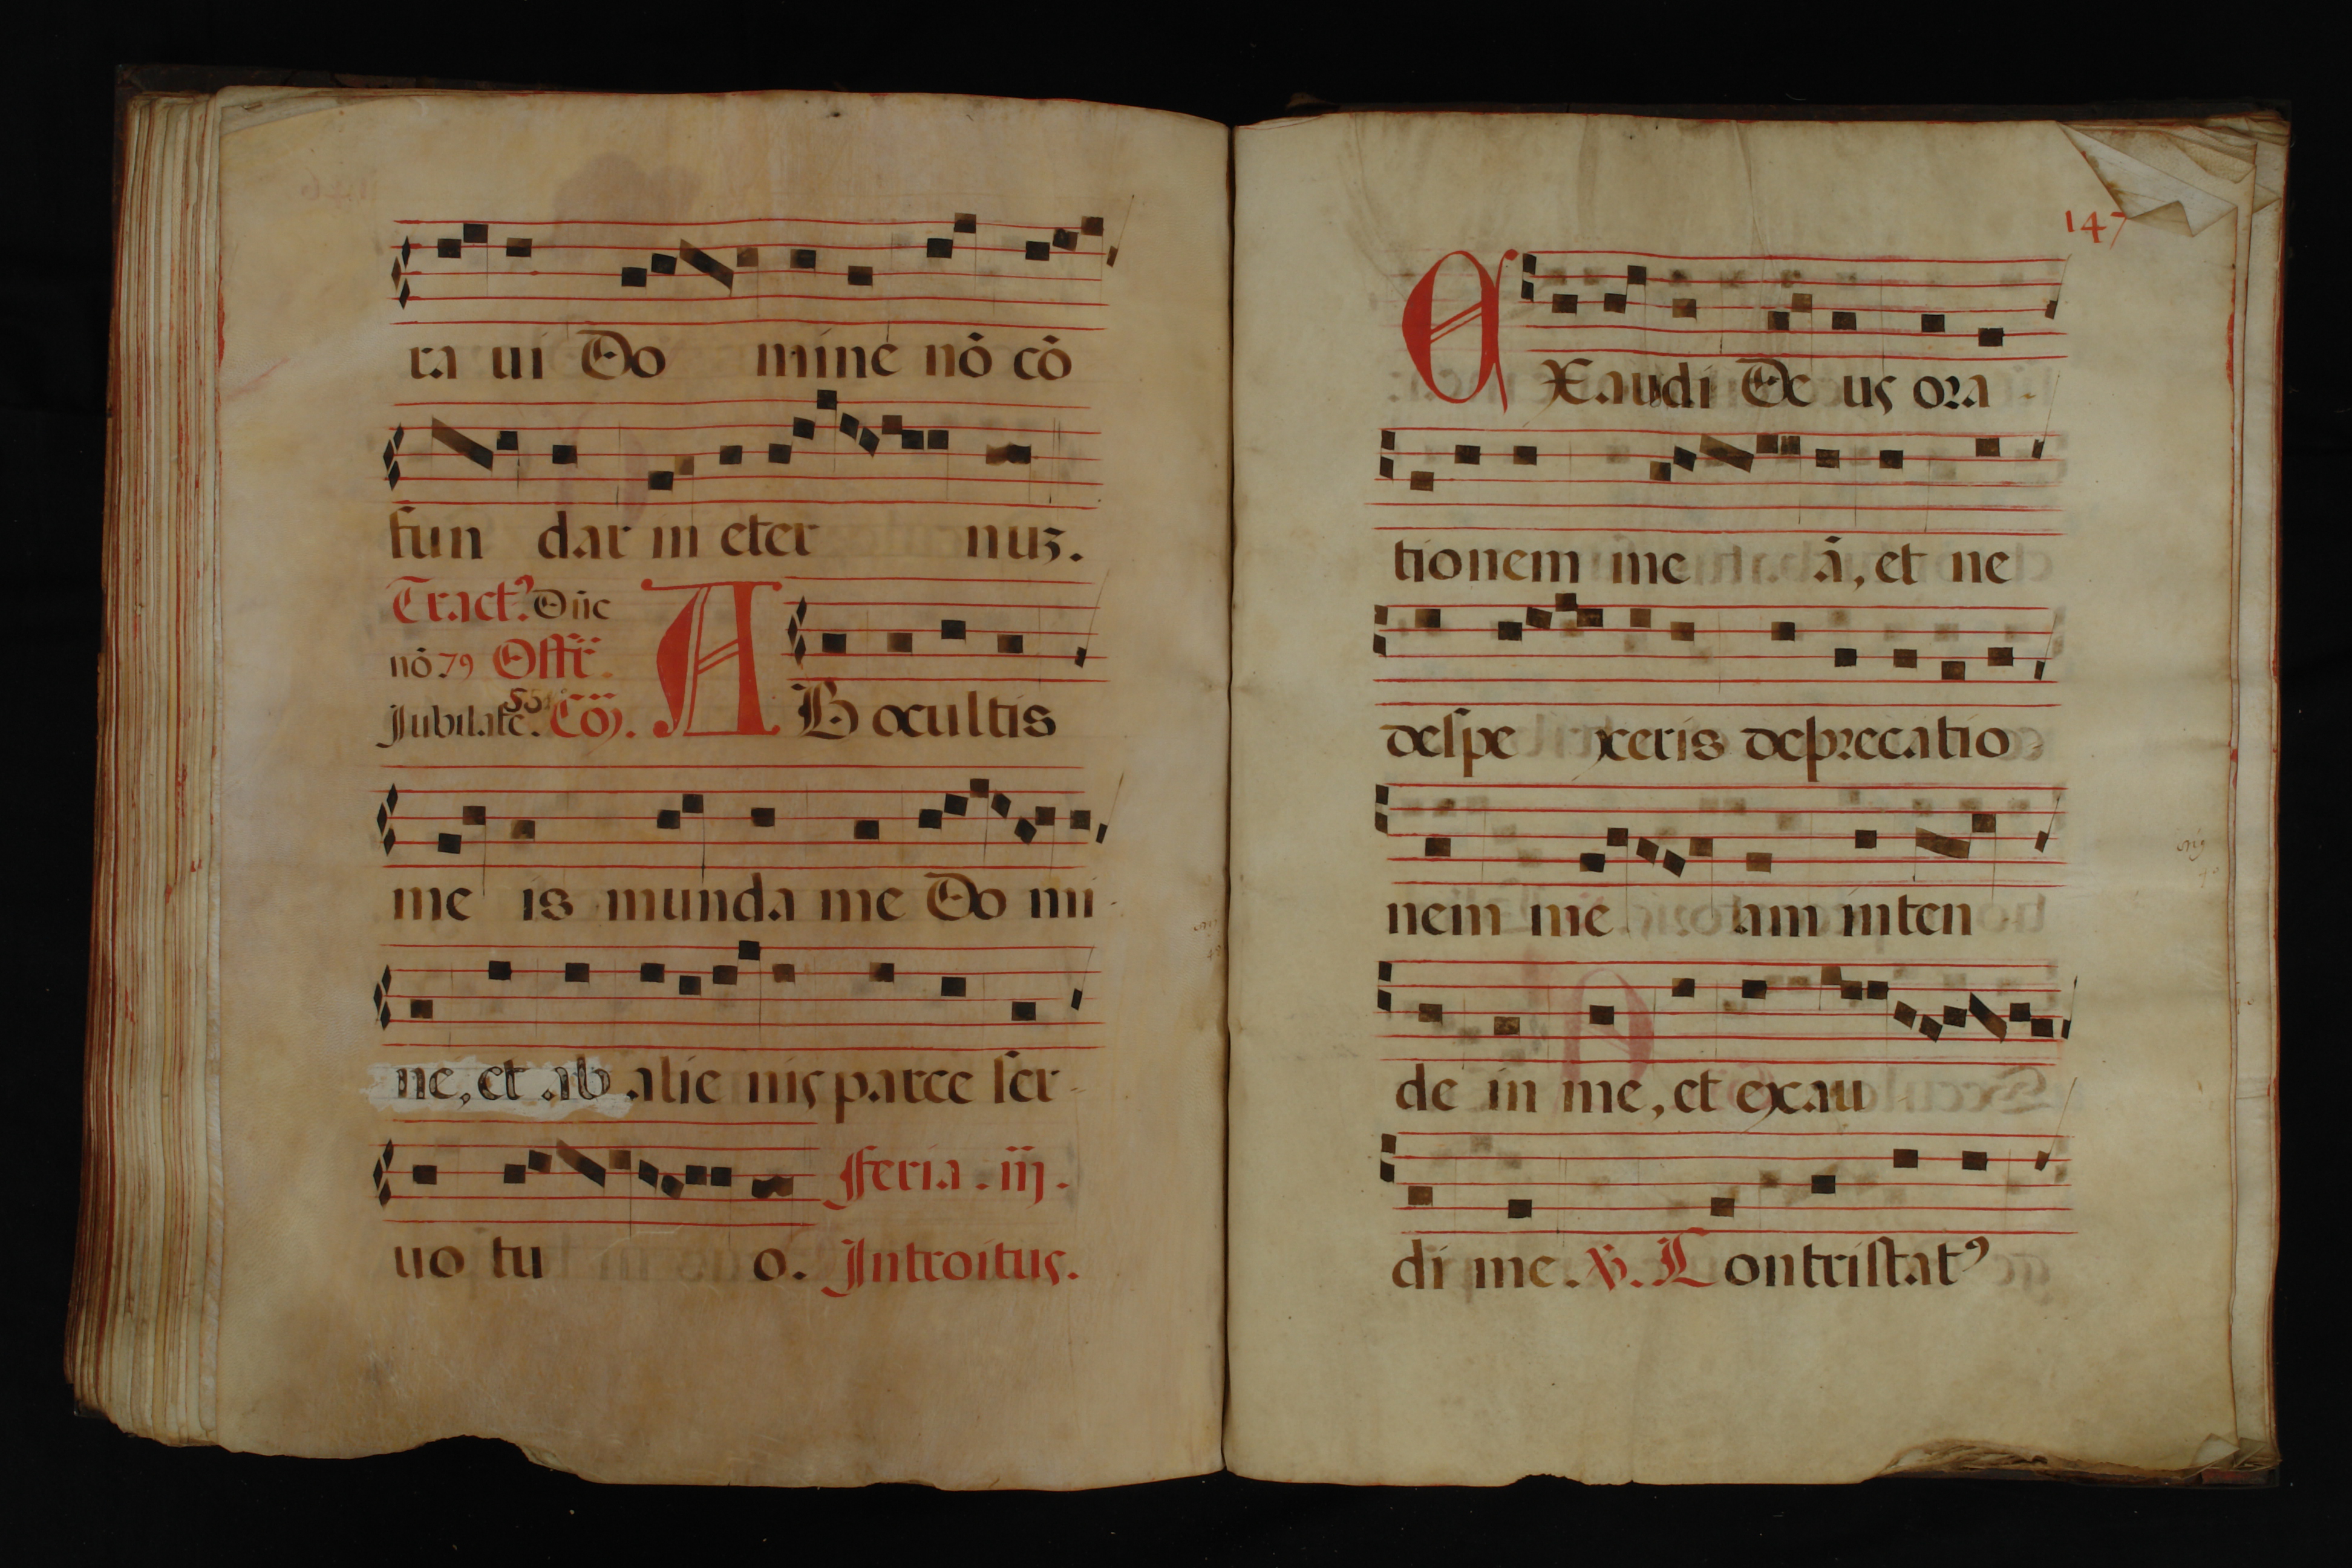 ra ui Do mine nõ cõ
fun dar in eter nuʒ.
Tractꝰ. Dñe
nõ. 79 Offr̃.
Jubilate. 55 Cõȷ.
AB ocultis
me is munda me Do mi-
ne, et ab alie nis parce ſer-
uo tu o.
Feria . iij .
Introitus.
147
EXaudi De us ora -
tionem me ã, et ne
deſpe xeris deprecatio
nem me am inten
de in me, et exau
di me. ℣. Contriſtatꝰ